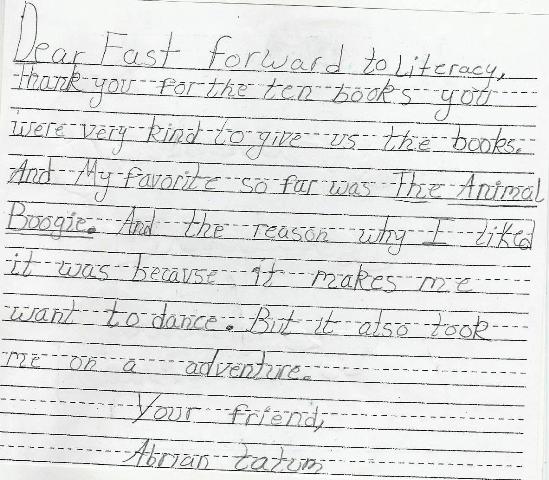 Dear Fast forward to Literacy,
Thank you for the ten books you
were very kind to give us the books.
And My favorite so far was The Animal
Boogie. And the reason why I liked
it was because it makes me
want to dance. But it also took
me on a adventure.
Your friend,
Abrian tatum